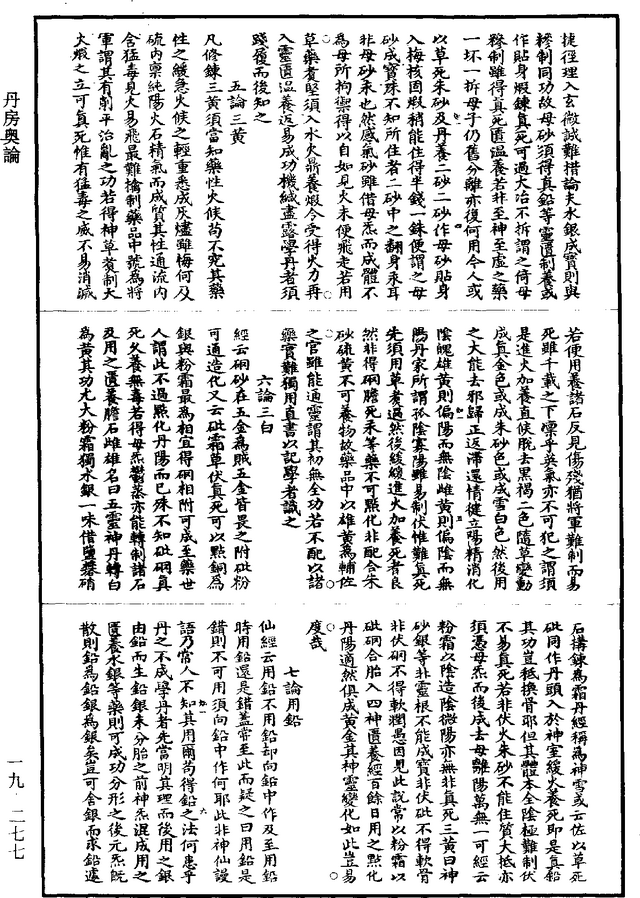 捷徑理入玄微誠難措論夫水銀成寶則與
糝制同功故母砂須得真鉛等靈匱制養或
作貼身煅鍊真死可過大冶不拆謂之倚母
糝制雖得真死匱溫養若非至神至虛之藥
一坯一拆母子仍舊分離亦復何用今人或
以草死朱砂及丹養二砂二砂作母砂貼身
入梅核固煅稍能住得半錢一銖便謂之母
砂成寶殊不知所住者二砂中之翻身朱耳
非母砂汞也然感氣砂雖借母炁而成體不
為母所拘禦得以自如見火未便飛走若用
草藥煑堅須入水火鼎養煅令受得火力再
入靈匱溫養返易成功機緘盡露學丹者須
踐履而後知之
五論三黄
凡修鍊三黄須當知藥性火候苟不究其藥
性之緩急火候之輕重悉成灰燼雖悔何及
硫内禀純陽火石精氣而成質其性通流内
含猛毒見火易飛最難擒制藥品中號為將
軍謂其有削平治亂之功若得神草煑制大
火煅之立可真死惟有猛毒之威不易消滅
若便用養諸石反見傷殘猶將軍難制而易
死雖千載之下懍乎英氣亦不可犯之謂須
是進火加養直候脱去黒褐二色隨草變動
成真金色或成朱砂色或成雪白色然後用
之大能去邪歸正返滯還情健立陽精消化
陰魄雄黄則偏陽而無陰雌黄則偏陰而無
陽丹家所謂孤陰寡陽雖易制伏惟難真死
先須用草煑過然後緩緩進火加養死者良
然非得硐膽死汞等藥不可㸃化非配合朱
砂硫黄不可養物故藥品中以雄黄為輔佐
之官雖能通靈謂其初無全功若不配以諸
藥實難獨用直書以記學者識之
六論三白
經云硐砂在五金為賊五金皆畏之附砒粉
可通造化又云砒霜草伏真死可以㸃銅為
銀與粉霜最為相宜得硐相附可成至藥世
人謂此不過㸃化丹陽而已殊不知砒硐真
死久養無毒若得母炁鬱蒸亦能轉制諸石
及用之匱養膽石雌雄名曰五靈神丹轉白
為黄其功尤大粉霜獨水銀一味借鹽礬硝
石搆鍊為霜丹經稱為神雪或云佐以草死
砒同作丹頭入於神室緩火養死即是真鉛
其功豈秪換骨耶但其體本全陰極難制伏
不易真死若非伏火朱砂不能住質大抵亦
須憑母炁而後成去母離陽萬無一可經云
粉霜以陰造陰微陽亦無非真死三黄曰神
砂銀等非靈根不能成寶非伏砒不得軟骨
非伏硐不得軟潤愚因見此説常以粉霜以
砒硐合胎入四神匱養經百餘日用之㸃化
丹陽適然俱成黄金其神靈變化如此豈易
度哉
七論用鉛
仙經云用鉛不用鉛却向鉛中作及至用鉛
時用鉛還是錯蓋常至此而疑之曰用鉛是
錯則不可用須向鉛中作何耶此非神仙謾
語乃常人不知其用爾苟得鉛之法何患乎
丹之不成學丹者先當明其理而後用之銀
由鉛而生鉛銀未分胎之前神炁混成用之
匱養水銀等藥則可成功分形之後元炁既
散則鉛為鉛銀為銀矣豈可舍銀而求鉛遠
丹房奧論
一九·二七七